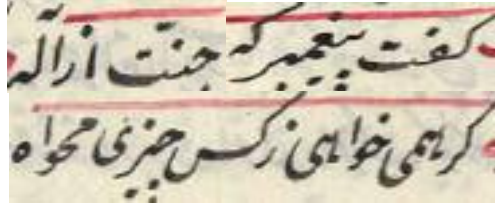 گفت پیغمبر که جنّت از اله
گر همی خواهی ز کس چیزی مخواه